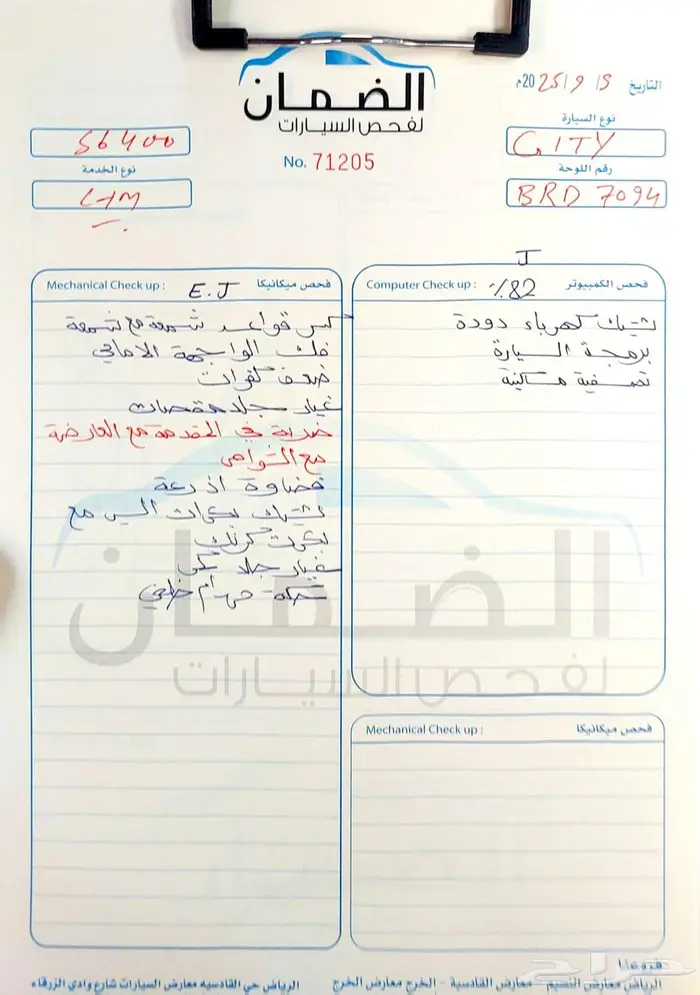 الضمان
لفحص السيارات
No. 71205
التاريخ 2025/9/5م
نوع السيارة
CITY
رقم اللوحة
BRD 7094
56400
نوع الخدمة
فحص الكمبيوتر Computer Check up : %82
J
تشيك كهرباء دودة
برمجة السيارة
تصفية مساكنية
فحص ميكانيكا Mechanical Check up : E.J
كسر قواعد شمعة مع شمعة
فك الواجهة الامامي
ضعف كفرات
غيار جلد مقصات
ضربة في المقدمة مع العارضة
مع الشواصي
قضاوة اذرعة
تشيك بكرات السير مع
بكرت كرنك
غيار جلد
خلفي
فحص ميكانيكا Mechanical Check up :
الضمان
لفحص السيارات
فروعنا
الرياض معارض النسيم - معارض القادسية - الخرج معارض الخرج
الرياض حي القادسيه معارض السيارات شارع وادي الزرقاء
حراج